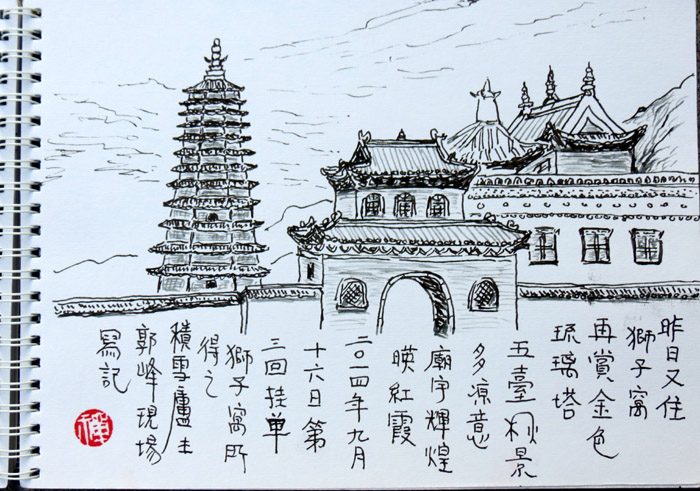 昨日又住
獅子窩
再賞金色
琉璃塔
五臺秋景
多凉意
廟宇輝煌
暎紅霞
二〇一四年九月
十六日第
三回挂单
獅子窩所
得之
積雪廬主
郭峰現場
寫記
禪